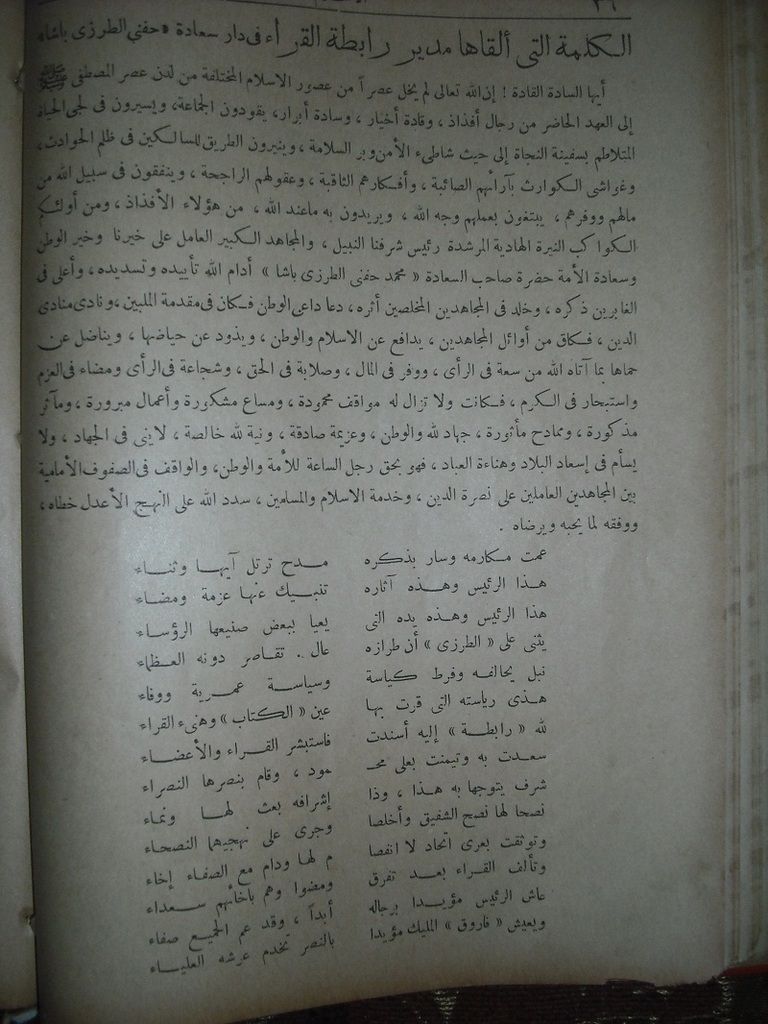 ٣٦
الكلمة التى ألقاها مدير رابطة القراء فى دار سعادة « حفنى الطرزى باشا »
أيها السادة القادة ! إن الله تعالى لم يخل عصراً من عصور الاسلام المختلفة من لدن عصر المصطفى ﷺ
إلى العهد الحاضر من رجال أفذاذ ، وقادة أخيار ، وسادة أبرار، يقودون الجماعة، ويسيرون فى لجى الحياة
المتلاطم بسفينة النجاة إلى حيث شاطىء الأمن وبر السلامة ، وينيرون الطريق للسالكين فى ظلم الحوادث،
وغواشى الكوارث بآرائهم الصائبة ، وأفكارهم الثاقبة ، وعقولهم الراجحة ، وينفقون فى سبيل الله من
مالهم ووفرهم ، يبتغون بعملهم وجه الله ، ويريدون به ماعند الله ، من هؤلاء الأفذاذ ، ومن أولئكم
الكواكب النيرة الهادية المرشدة رئيس شرفنا النبيل ، والمجاهد الكبير العامل على خيرنا وخير الوطن
وسعادة الأمة حضرة صاحب السعادة « محمد حفنى الطرزى باشا » أدام الله تأييده وتسديده، وأعلى فى
الغابرين ذكره ، وخلد فى المجاهدين المخلصين أثره، دعا داعى الوطن فكان فى مقدمة الملبين، ونادى منادى
الدين ، فكان من أوائل المجاهدين ، يدافع عن الاسلام والوطن ، ويذود عن حياضها ، ويناضل عن
حماها بما آتاه الله من سعة فى الرأى ، ووفر فى المال ، وصلابة فى الحق ، وشجاعة فى الرأى ومضاء فى العزم
واستبحار فى الكرم ، فكانت ولا تزال له مواقف محمودة ، ومساع مشكورة وأعمال مبرورة ، ومآثر
مذكورة ، وممادح مأثورة ، جهاد لله والوطن ، وعزيمة صادقة ، ونية لله خالصة ، لاينى فى الجهاد ، ولا
يسأم فى إسعاد البلاد وهناءة العباد ، فهو بحق رجل الساعة للأمة والوطن، والواقف فى الصفوف الأمامية
بين المجاهدين العاملين على نصرة الدين ، وخدمة الاسلام والمسلمين ، سدد الله على النهج الأعدل خطاه ،
ووفقه لما يحبه ويرضاه .
عمت مكارمه وسار بذكره مدح ترتل آيها وثناء
هذا الرئيس وهذه آثاره تنبيك عنها عزمة ومضاء
هذا الرئيس وهذه يده التى يعيا ببعض صنيعها الرؤساء
يثنى على « الطرزى » أن طرازه عال .. تقاصر دونه العظماء
نبل يحالفه وفرط كياسة وسياسة عمرية ووفاء
هذى رياسته التى قرت بها عين « الكتاب » وهنىء القراء
لله « رابطة » إليه أسندت فاستبشر القراء والأعضاء
سعدت به وتيمنت بعلى محـ مود ، وقام بنصرها النصراء
شرف يتوجها به هذا ، وذا إشرافه بعث لها ونماء
نصحا لها نصح الشفيق وأخلصا وجرى على نهجيهما النصحاء
وتوثقت بعرى اتحاد لا انفصا م لها ودام مع الصفاء إخاء
وتألف القراء بعد تفرق ومضوا وهم بأخائهم سعداء
عاش الرئيس مؤيدا برجاله أبداً ، وقد عم الجميع صفاء
ويعيش « فاروق » المليك مؤيدا بالنصر تخدم عرشه العلياء